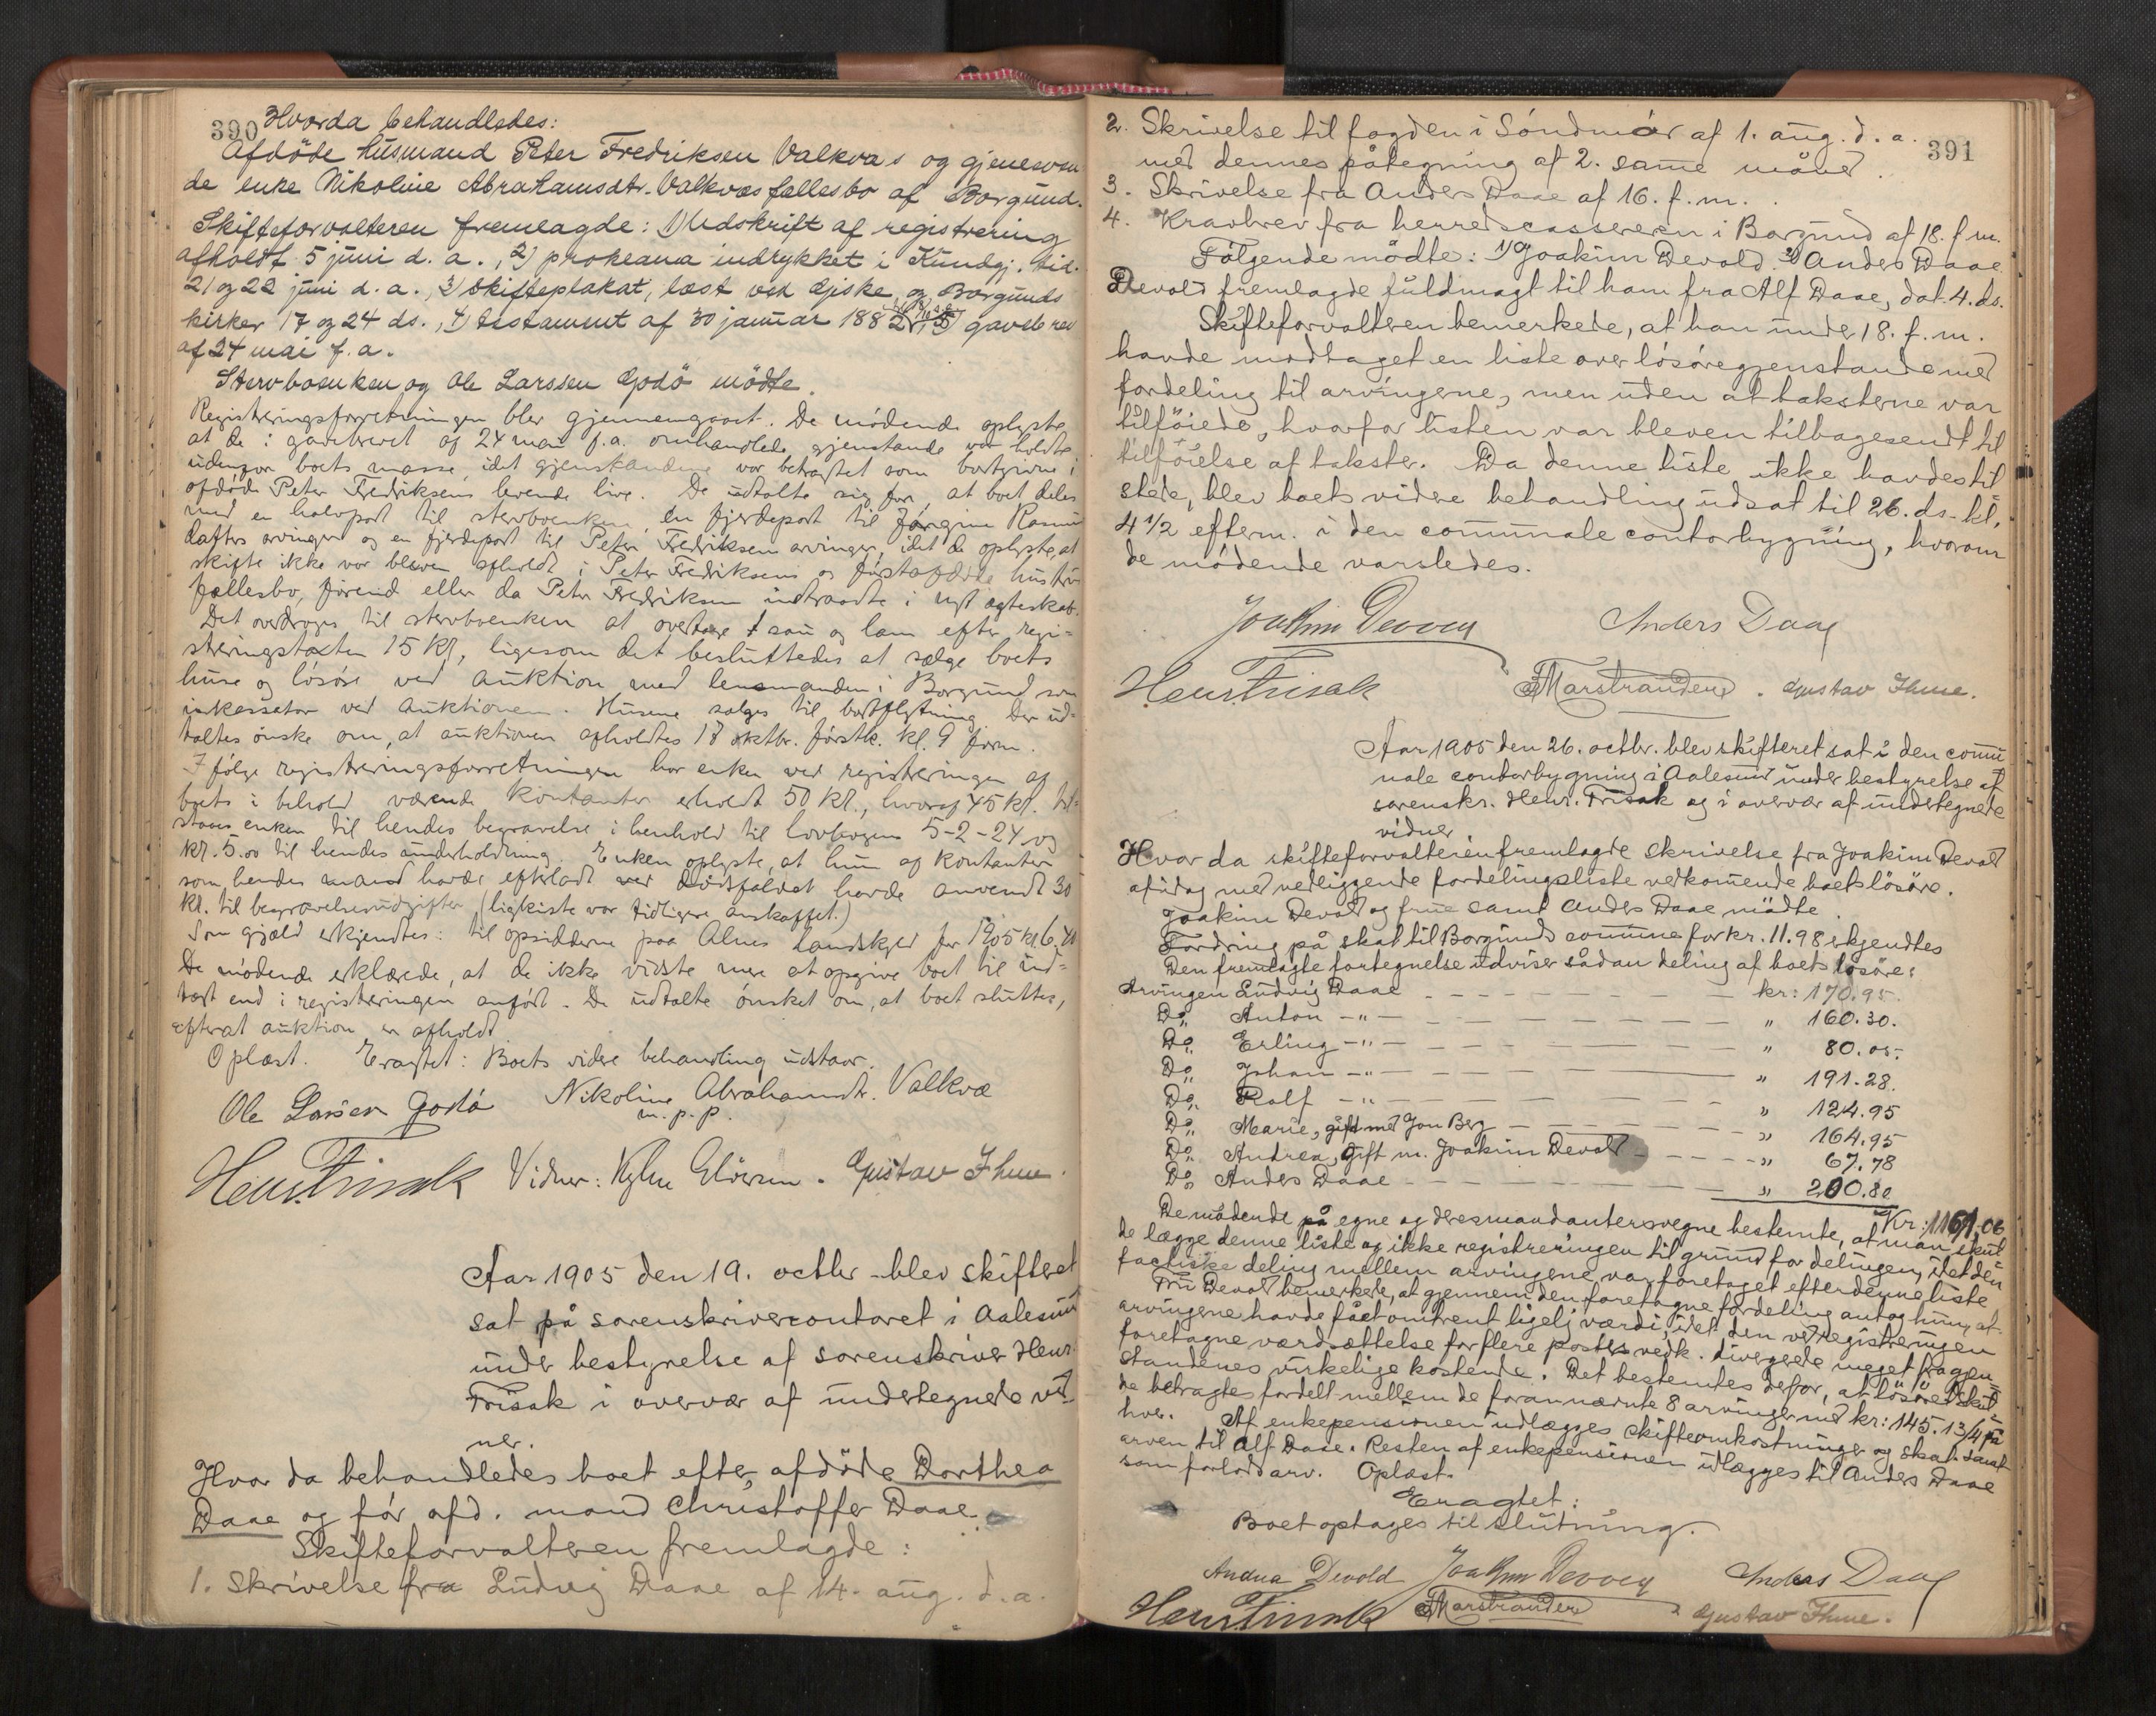 390
Hvorda behandledes:
Afdöde husmand Peter Fredriksen Valkvæs og gjenleven
de enke Nikoline Abrahamsdtr. Valkvæs fællesbo af Borgund.
Skifteforvalteren fremlagde: 1) Udskrift af registrering
afholdt 5 juni d. a., 2) proklama indrykket i Kundgj. tid.
21 og 22 juni d. a., 3) skifteplakat, læst ved Giske og Borgunds
kirker 17 og 24 ds., 4) testament af 30 januar 1882, 5) gavebrev
af 24 mai f. a.
Stervboenken og Ole Larssen Godö mödte.
Registreringsforretningen blev gjennemgaaet. De mödende oplyste
at de i gavebrevet af 24 mai f. a. omhandlede gjenstande var holdte
udenfor boets masse, idet gjenstandene var betragtet som bortgivne i
afdöde Peter Fredriksens levende live. De udtalte sig for, at boet deles
med en halvpart til stervboenken, en fjerdepart til Jörgine Rasmus
datters arvinger og en fjerdepart til Peter Fredriksens arvinger, idet de oplyste, at
skifte ikke var bleven afholdt i Peter Fredriksens og förstafdöde hustrus
fællesbo, förend eller da Peter Fredriksen indtraadte i nyt ægteskab.
Det overdroges til stervboenken at overtage 1 sau og lam efter regi=
streringstaxten 15 kr, ligesom det besluttedes at sælge boets
huse og lösöre ved auktion med lensmanden i Borgund som
inkassator ved auktionen. Husene sælges til bortflytning. Der ud=
taltes önske om, at auktionen afholdtes 18 oktbr. förstk. kl. 9 form.
Ifölge registreringsforretningen har enken ved registreringen af
boets i behold værende kontanter erholdt 50 kr., hvoraf 45 kr. til=
staaes enken til hendes begravelse i henhold til lovbogens 5-2-24 og
kr. 5.00 til hendes underholdning. Enken oplyste, at hun af kontanter
som hendes mand havde efterladt ved dödsfaldet havde anvendt 30
kr. til begravelsesudgifter (ligkiste var tidligere anskaffet.)
Som gjæld erkjendtes: til opsidderne paa Alnes landskyld for 1905 kr 6.40
De mödende erklærede, at de ikke vidste mere at opgive boet til ind=
tægt end i registreringen anfört. De udtalte önsket om, at boet sluttes,
efterat auktion er afholdt.
Oplæst. Eragtet: Boets videre behandling udstaar.
Ole Larssen Godö Nikoline Abrahamsdtr. Valkvæ
m. p. p.
Henr Frisak Vidner: Gustav Ihme.
Aar 1905 den 19. octbr blev skifteret
sat på sorenskrivercontoret i Aalesund
under bestyrelse af sorenskriver Henr.
Frisak i overvær af undertegnede vid
ner.
Hvor da behandledes boet efter afdöde Dorthea
Daae og för afd. mand Christoffer Daae.
Skifteforvalteren fremlagde:
1. Skrivelse fra Ludvig Daae af 14. aug. d. a.
391
2. Skrivelse til fogden i Söndmör af 1. aug. d. a.
med dennes påtegning af 2. same måned.
3. Skrivelse fra Anders Daae af 16. f. m.
4. Kravbrev fra herredscassereren i Borgund af 18. f. m.
Fölgende mödte: 1) Joakim Devold 2) Anders Daae.
Devold fremlagde fuldmagt til ham fra Alf Daae, dat. 4. ds.
Skifteforvalteren bemerkede, at han under 18. f. m.
havde modtaget en liste over lösöregjenstande med
fordeling til arvingerne, men uden at taksterne var
tilföiede, hvorfor listen var bleven tilbagesendt til
tilföielse af takster. Da denne liste ikke havdes til
stede, blev boets videre behandling udsat til 26. ds. kl.
4 1/2 efterm. i den communale contorbygning, hvorom
de mödende varsledes.
Joakim Devold Anders Daae
Henr. Frisak Marstrander. Gustav Ihme.
Aar 1905 den 26. octbr. blev skifteret sat i den comu
nale contorbygning i Aalesund under bestyrelse af
sorenskr. Henr. Frisak og i overvær af undertegnede
vidner.
Hvor da skifteforvalteren fremlagde skrivelse fra Joakim Devold
af idag med vedliggende fordelingsliste vedkomende boets lösöre.
Joakim Devold og frue samt Anders Daae mödte.
Fordring på skat til Borgunds comune for kr. 11.98 erkjendtes
Den fremlagte fortegnelse udviser sådan deling af boets lösöre:
Arvingen Ludvig Daae — kr: 170.95.
Do. Anton —"— " 160.30.
Do. Erling —"— " 80.05.
Do. Johan —"— " 191.28.
Do. Rolf —"— " 124.95
Do. Marie, gift med Jon Berg — " 164.95
Do. Andrea, gift m. Joakim Devold — " 67.78
Do. Anders Daae — " 200.80
Kr: 1161.06
De mödende på egne og deres mandanters vegne bestemte, at man skul
de lægge denne liste og ikke registreringen til grund for delingen, idet den
factiske deling mellem arvingerne var foretaget efter denne liste
Fru Devold bemerkede, at gjennem den foretagne fordeling antog hun, at
arvingerne havde fået omtrent ligelig værdi, idet den ved registreringen
foretagne værdsættelse for flere posters vedk. divergerede meget fra gjen=
standenes virkelige kostende. Det bestemtes derfor, at lösöret skul
de betragtes fordelt mellem de forannævnte 8 arvinger med kr: 145.13 1/4 på
hver. Af enkepensionen udlægges skifteomkostninger og skat samt
arven til Alf Daae. Resten af enkepensionen udlægges til Anders Daae
som forlods arv. Oplæst.
Eragtet:
Boet optages til slutning.
Andrea Devold Joakim Devold Anders Daae
Henr. Frisak Marstrander Gustav Ihme.